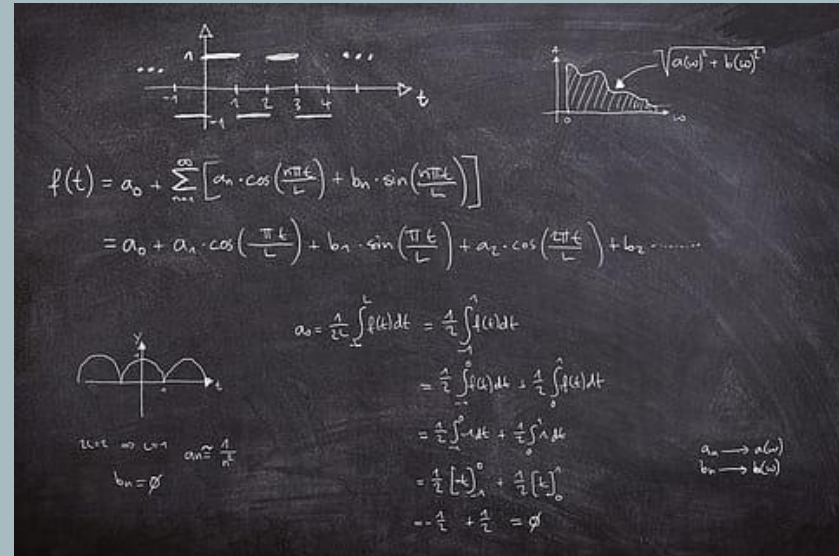 1
... ...
-1 1 2 3 4 t
-1
√(a(ω)² + b(ω)²)
0 ω
f(t) = a₀ + ∞∑n=1 [aₙ·cos(nπt/L) + bₙ·sin(nπt/L)]
= a₀ + a₁·cos(πt/L) + b₁·sin(πt/L) + a₂·cos(2πt/L) + b₂ ........
a₀ = 1/2L ∫f(t)dt = 1/2 ∫₋₁¹ f(t)dt
y
t
= 1/2 ∫₋₁⁰ f(t)dt + 1/2 ∫₀¹ f(t)dt
= 1/2 ∫₋₁⁰ -1dt + 1/2 ∫₀¹ 1dt
2L=2 ⇒ L=1 aₙ≈ 1/n²
bₙ=∅
= 1/2 [-t]₋₁⁰ + 1/2 [t]₀¹
= -1/2 + 1/2 = ∅
aₙ → a(ω)
bₙ → b(ω)